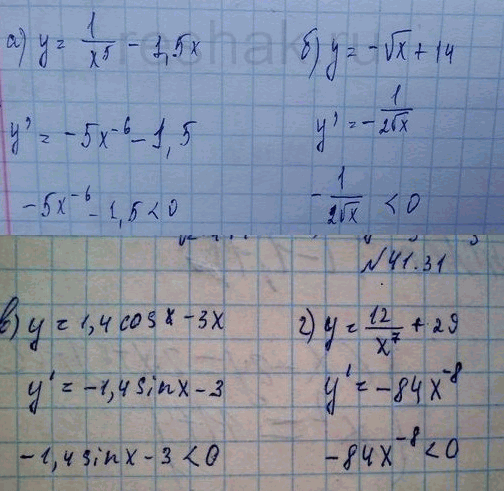 а) y = 1/x⁵ - 1,5x
y' = -5x⁻⁶ - 1,5
-5x⁻⁶ - 1,5 < 0
б) y = -√x + 14
y' = - 1/2√x
- 1/2√x < 0
№41.31
в) y = 1,4 cosx - 3x
y' = -1,4 sinx - 3
-1,4 sinx - 3 < 0
г) y = 12/x⁷ + 29
y' = -84x⁻⁸
-84x⁻⁸ < 0